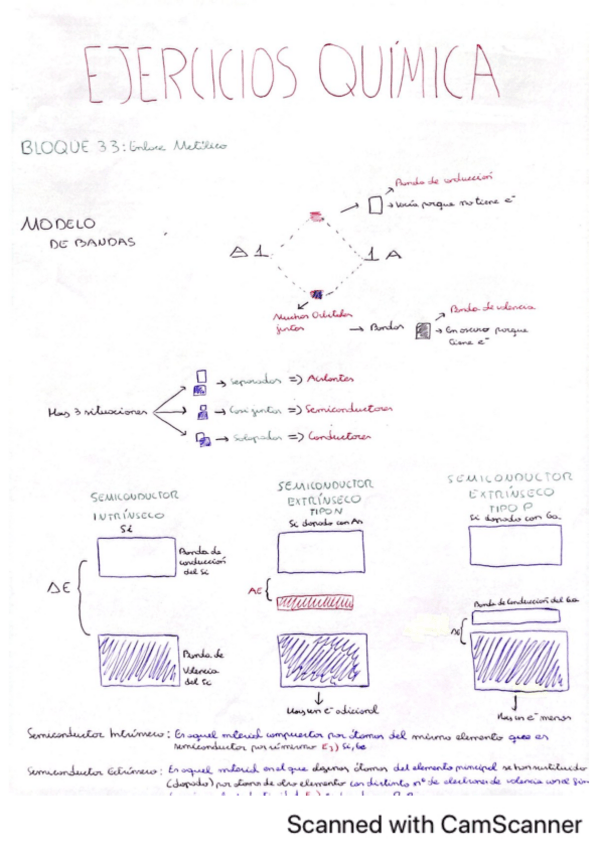 EJERCICIOS QUÍMICA
BLOQUE 33: Enlace Metálico
MODELO
DE BANDAS
Δ 1
1 A
Banda de conducción
→ Vacía porque no tiene e⁻
Muchos Orbitales
juntos
→ Bandas
Banda de valencia
→ En oscuro porque
tiene e⁻
Hay 3 situaciones
→ Separados => Aislantes
→ Casi juntos => Semiconductores
→ Solapados => Conductores
SEMICONDUCTOR
INTRÍNSECO
Si
Banda de
conducción
del Si
ΔE
Banda de
Valencia
del Si
SEMICONDUCTOR
EXTRÍNSECO
TIPO N
Si dopado con As
ΔE
Hay un e⁻ adicional
SEMICONDUCTOR
EXTRÍNSECO
TIPO P
Si dopado con Ga
Banda de Conducción del Ga
ΔE
Hay un e⁻ menos
Semiconductor Intrínseco: Es aquel material compuesto por átomos del mismo elemento que es
semiconductor por sí mismo Ej) Si, Ge
Semiconductor Extrínseco: Es aquel material en el que algunos átomos del elemento principal se han sustituido
(dopado) por átomos de otro elemento con distinto nº de electrones de valencia
Scanned with CamScanner